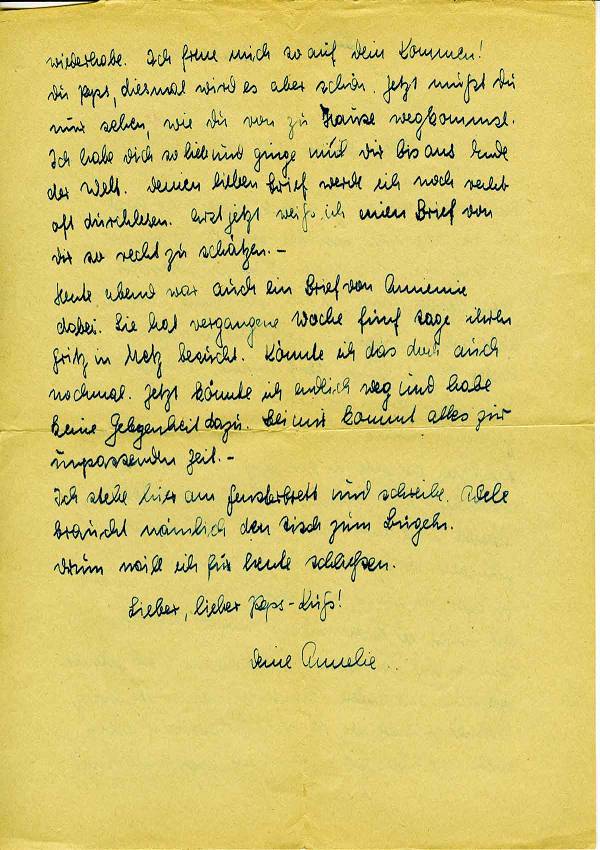 wiederhabe. Ich freue mich so auf dein Kommen!
Du Peps, diesmal wird es aber schön. Jetzt mußt Du
nur sehen, wie Du von zu Hause wegkommst.
Ich habe dich so lieb und ginge mit dir bis ans Ende
der Welt. Deinen lieben Brief werde ich noch recht
oft durchlesen. Erst jetzt weiß ich einen Brief von
dir so recht zu schätzen. –
Heute abend war auch ein Brief von Annemie
dabei. Sie hat vergangene Woche fünf Tage ihren
Fritz in Metz besucht. Könnte ich das doch auch
nochmal. Jetzt könnte ich endlich weg und habe
keine Gelegenheit dazu. Bei mir kommt alles zur
unpassenden Zeit. –
Ich stehe hier am Fensterbrett und schreibe.
braucht nämlich den Tisch zum Bügeln.
Drum will ich für heute schließen.
Lieber, lieber Peps-Kuß!
Deine Annelie..